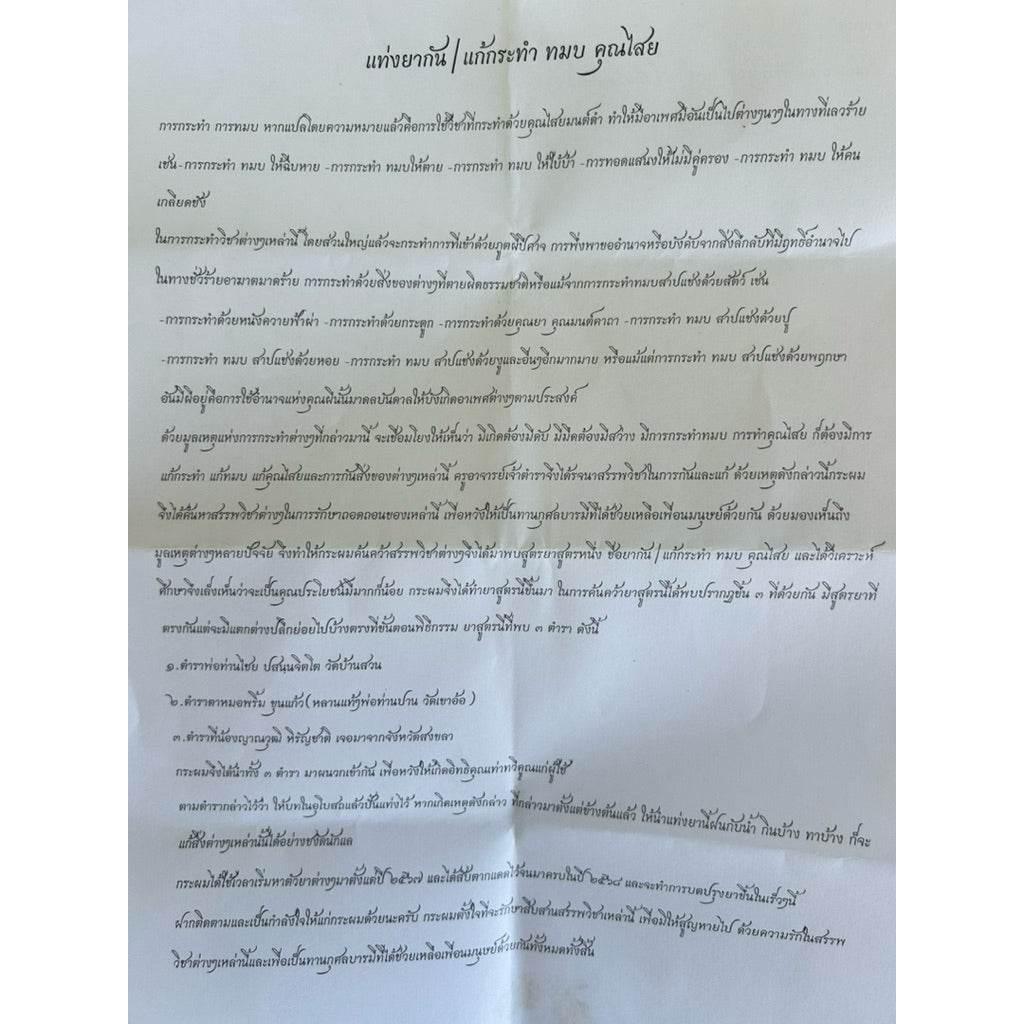 แท่งยากัน/แก้กระทำ ทมบ คุณไสย
การกระทำ การทมบ หากแปลโดยความหมายแล้วคือการใช้วิชาที่กระทำด้วยคุณไสยมนต์ดำ ทำให้มีอาเพศมีอันเป็นไปต่างๆนาๆในทางที่เลวร้าย
เช่น-การกระทำ ทมบ ให้ฉิบหาย -การกระทำ ทมบให้ตาย -การกระทำ ทมบ ให้ใบ้บ้า -การทอดแสนงให้ไม่มีคู่ครอง -การกระทำ ทมบ ให้คน
เกลียดชัง
ในการกระทำวิชาต่างๆเหล่านี้ โดยส่วนใหญ่แล้วจะกระทำการที่เข้าด้วยภูตผีปีศาจ การพึ่งพาขออำนาจหรือบังคับจากสิ่งลึกลับที่มีฤทธิ์อำนาจไป
ในทางชั่วร้ายอาฆาตมาดร้าย การกระทำด้วยสิ่งของต่างๆที่ตายผิดธรรมชาติหรือแม้จากการกระทำทมบสาปแช่งด้วยสัตว์ เช่น
-การกระทำด้วยหนังควายฟ้าผ่า -การกระทำด้วยกระดูก -การกระทำด้วยคุณยา คุณมนต์คาถา -การกระทำ ทมบ สาปแช่งด้วยปู
-การกระทำ ทมบ สาปแช่งด้วยหอย -การกระทำ ทมบ สาปแช่งด้วยงูและอื่นๆอีกมากมาย หรือแม้แต่การกระทำ ทมบ สาปแช่งด้วยพฤกษา
อันมีผีอยู่คือการใช้อำนาจแห่งคุณผีนั้นมาดลบันดาลให้บังเกิดอาเพศต่างๆตามประสงค์
ด้วยมูลเหตุแห่งการกระทำต่างๆที่กล่าวมานี้ จะเชื่อมโยงให้เห็นว่า มีเกิดต้องมีดับ มีมืดต้องมีสว่าง มีการกระทำทมบ การทำคุณไสย ก็ต้องมีการ
แก้กระทำ แก้ทมบ แก้คุณไสยและการกันสิ่งของต่างๆเหล่านี้ ครูอาจารย์เจ้าตำราจึงได้รจนาสรรพวิชาในการกันและแก้ ด้วยเหตุดังกล่าวนี้กระผม
จึงได้ค้นหาสรรพวิชาต่างๆในการรักษาถอดถอนของเหล่านี้ เพื่อหวังให้เป็นทานกุศลบารมีที่ได้ช่วยเหลือเพื่อนมนุษย์ด้วยกัน ด้วยมองเห็นถึง
มูลเหตุต่างๆหลายปัจจัย จึงทำให้กระผมค้นคว้าสรรพวิชาต่างๆจึงได้มาพบสูตรยาสูตรหนึ่ง ชื่อยากัน/แก้กระทำ ทมบ คุณไสย และได้วิเคราะห์
ศึกษาจึงเล็งเห็นว่าจะเป็นคุณประโยชน์มิมากก็น้อย กระผมจึงได้ทำยาสูตรนี้ขึ้นมา ในการค้นคว้ายาสูตรนี้ได้พบปรากฏขึ้น ๓ ที่ด้วยกัน มีสูตรยาที่
ตรงกันแต่จะมีแตกต่างปลีกย่อยไปบ้างตรงที่ขั้นตอนพิธีกรรม ยาสูตรนี้ที่พบ ๓ ตำรา ดังนี้
๑.ตำราพ่อท่านไชย ปสนฺนจิตโต วัดบ้านสวน
๒.ตำราตาหมอพริ้ม ขุนแก้ว(หลานแท้ๆพ่อท่านปาน วัดเขาอ้อ)
๓.ตำราที่น้องญาณวุฒิ หิรัญชาติ เจอมาจากจังหวัดสงขลา
กระผมจึงได้นำทั้ง ๓ ตำรา มาผนวกเข้ากัน เพื่อหวังให้เกิดอิทธิคุณเท่าทวีคูณแก่ผู้ใช้
ตามตำรากล่าวไว้ว่า ให้บทในอุโบสถแล้วปั้นแท่งไว้ หากเกิดเหตุดังกล่าว ที่กล่าวมาตั้งแต่ข้างต้นแล้ว ให้นำแท่งยานี้ฝนกับน้ำ กินบ้าง ทาบ้าง ก็จะ
แก้สิ่งต่างๆเหล่านั้นได้อย่างชงัดนักแล
กระผมได้ใช้เวลาเริ่มหาตัวยาต่างๆมาตั้งแต่ปี ๒๕๖๗ และได้สับตากแดดไว้จนมาครบในปี ๒๕๖๘ และจะทำการบดปรุงยาขึ้นในเร็วๆนี้
ฝากติดตามและเป็นกำลังใจให้แก่กระผมด้วยนะครับ กระผมตั้งใจที่จะรักษาสืบสานสรรพวิชาเหล่านี้ เพื่อมิให้สูญหายไป ด้วยความรักในสรรพ
วิชาต่างๆเหล่านี้และเพื่อเป็นทานกุศลบารมีที่ได้ช่วยเหลือเพื่อนมนุษย์ด้วยกันทั้งหมดทั้งสิ้น